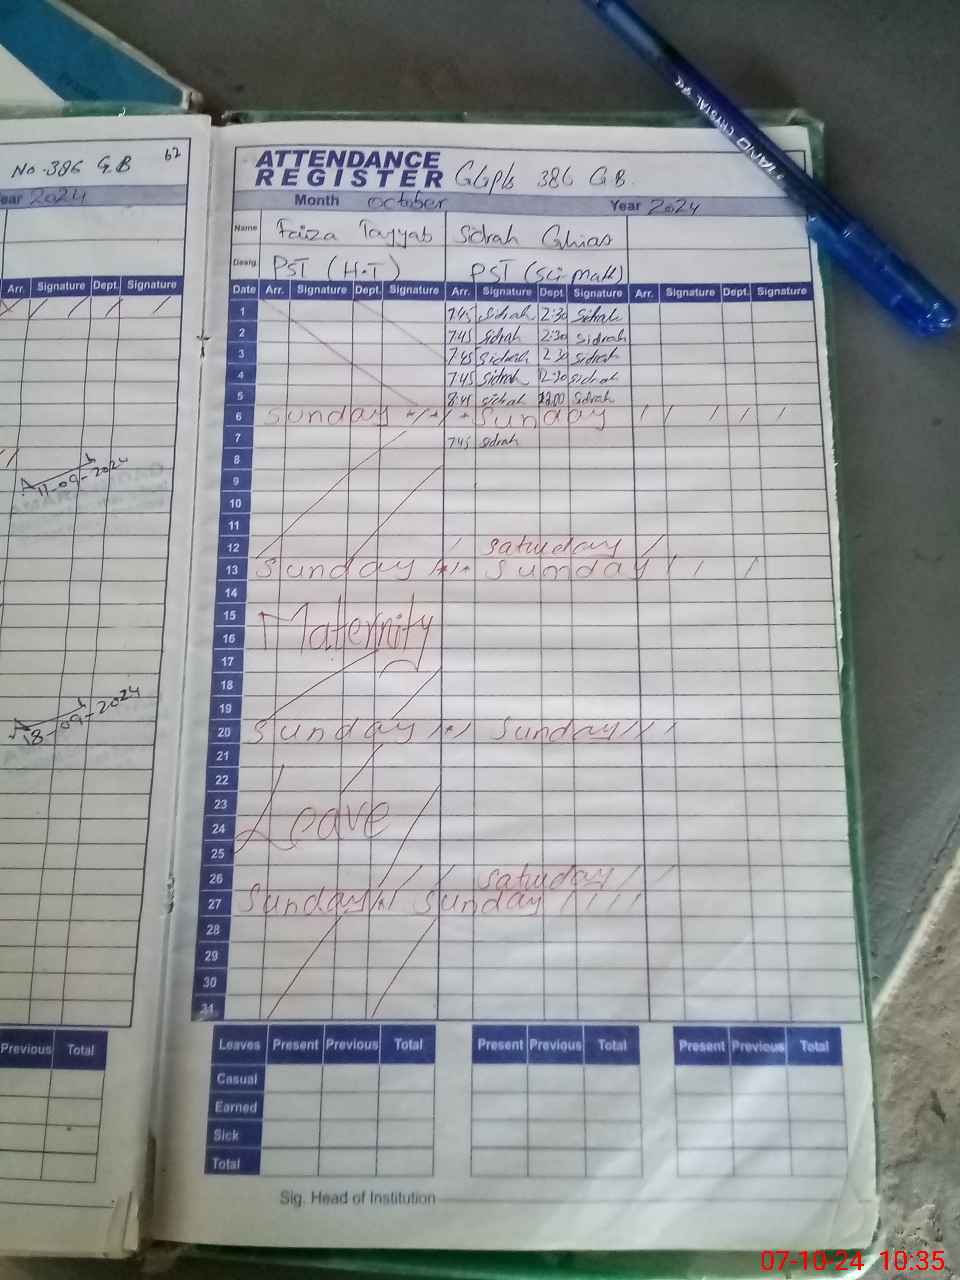 No. 386 G.B 62
ear 2024
Arr. Signature Dept. Signature
11-09-2024
18-09-2024
Previous Total
HAND CRYSTAL
ATTENDANCE
REGISTER GGPls 386 G.B.
Month october Year 2024
Name Faiza Tayyab Sidrah Ghias
Desig. PST (H.T) PST (Sci-Math)
Date Arr. Signature Dept. Signature Arr. Signature Dept. Signature Arr. Signature Dept. Signature
1 7:45 Sidrah 2:30 Sidrah
2 7:45 Sidrah 2:30 Sidrah
3 7:45 Sidrah 2:30 Sidrah
4 7:45 Sidrah 12:30 Sidrah
5 8:45 Sidrah Sidrah
6 Sunday Sunday
7 7:45 Sidrah
8
9
10
11
12 Saturday
13 Sunday Sunday
14
15
16 Maternity
17
18
19
20 Sunday Sunday
21
22
23
24 Leave
25
26 Saturday
27 Sunday Sunday
28
29
30
31
Leaves Present Previous Total Present Previous Total Present Previous Total
Casual
Earned
Sick
Total
Sig. Head of Institution
07-10-24 10:35